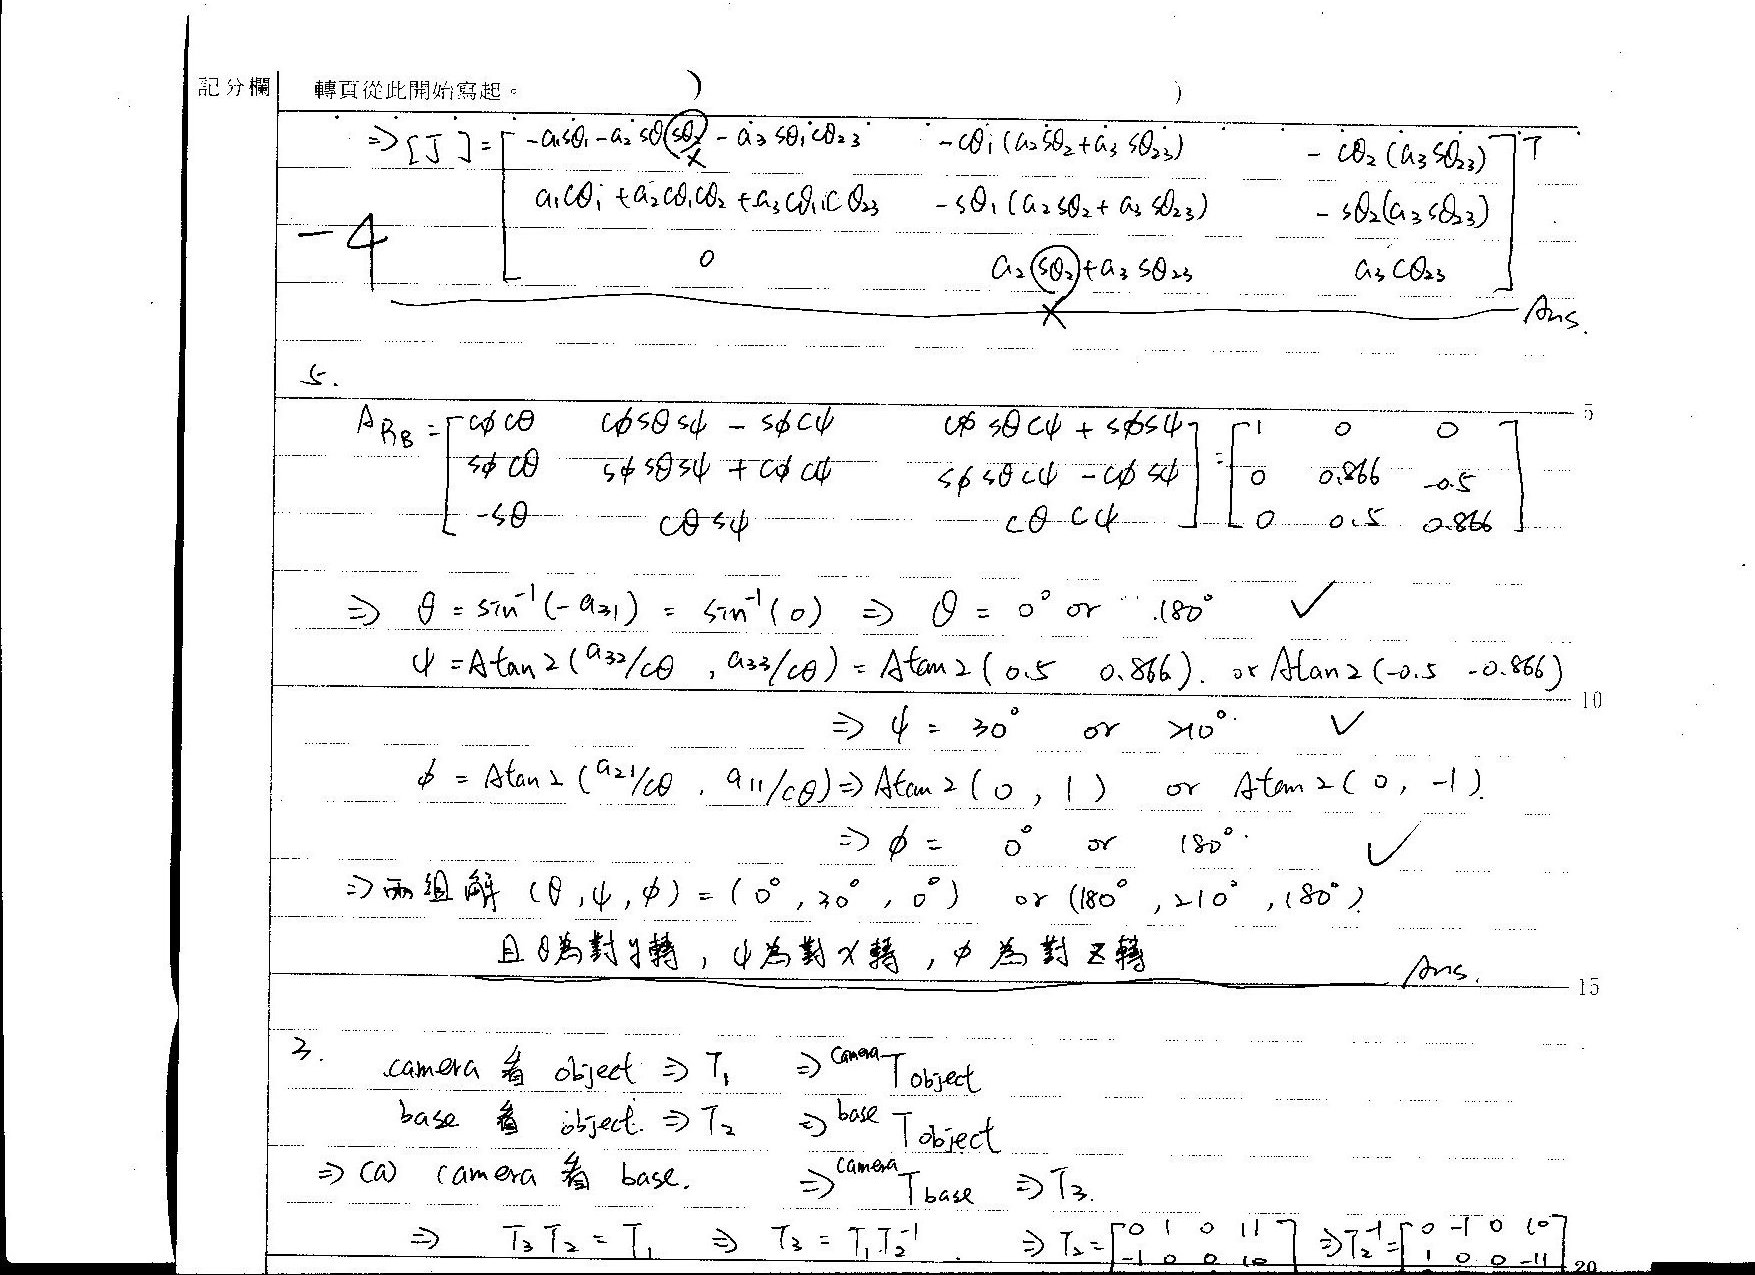 記分欄 轉頁從此開始寫起。
⇒[J]=[ -a₁sθ₁-a₂sθ(sθ₂)-a₃sθ₁cθ₂₃ -cθ₁(a₂sθ₂+a₃sθ₂₃) -cθ₂(a₃sθ₂₃) ]T
×
a₁cθ₁+a₂cθ₁cθ₂+a₃cθ₁cθ₂₃ -sθ₁(a₂sθ₂+a₃sθ₂₃) -sθ₂(a₃sθ₂₃)
-4
0 a₂(sθ₂)+a₃sθ₂₃ a₃cθ₂₃
× Ans.
5.
5
ARB=[ cφcθ cφsθsψ-sφcψ cφsθcψ+sφsψ ]=[ 1 0 0 ]
sφcθ sφsθsψ+cφcψ sφsθcψ-cφsψ 0 0.866 -0.5
-sθ cθsψ cθcψ 0 0.5 0.866
⇒ θ=sin⁻¹(-a₃₁)=sin⁻¹(0) ⇒ θ=0° or 180° ✓
ψ=Atan2(a₃₂/cθ, a₃₃/cθ)=Atan2(0.5 0.866). or Atan2(-0.5 -0.866)
10
⇒ ψ=30° or 210° ✓
φ=Atan2(a₂₁/cθ, a₁₁/cθ)⇒Atan2(0, 1) or Atan2(0, -1).
⇒ φ=0° or 180° ✓
⇒兩組解 (θ,ψ,φ)=(0°,30°,0°) or (180°,210°,180°)
且θ為對y轉,ψ為對x轉,φ為對z轉
Ans.
15
3.
camera 看 object ⇒ T₁ ⇒ cameraTobject
base 看 object ⇒ T₂ ⇒ baseTobject
⇒ (a) camera 看 base. ⇒ cameraTbase ⇒ T₃.
⇒ T₃T₂=T₁ ⇒ T₃=T₁T₂⁻¹. ⇒ T₂=[ 0 1 0 11 ] ⇒T₂⁻¹=[ 0 -1 0 10 ]
-1 0 0 10 1 0 0 -11
20